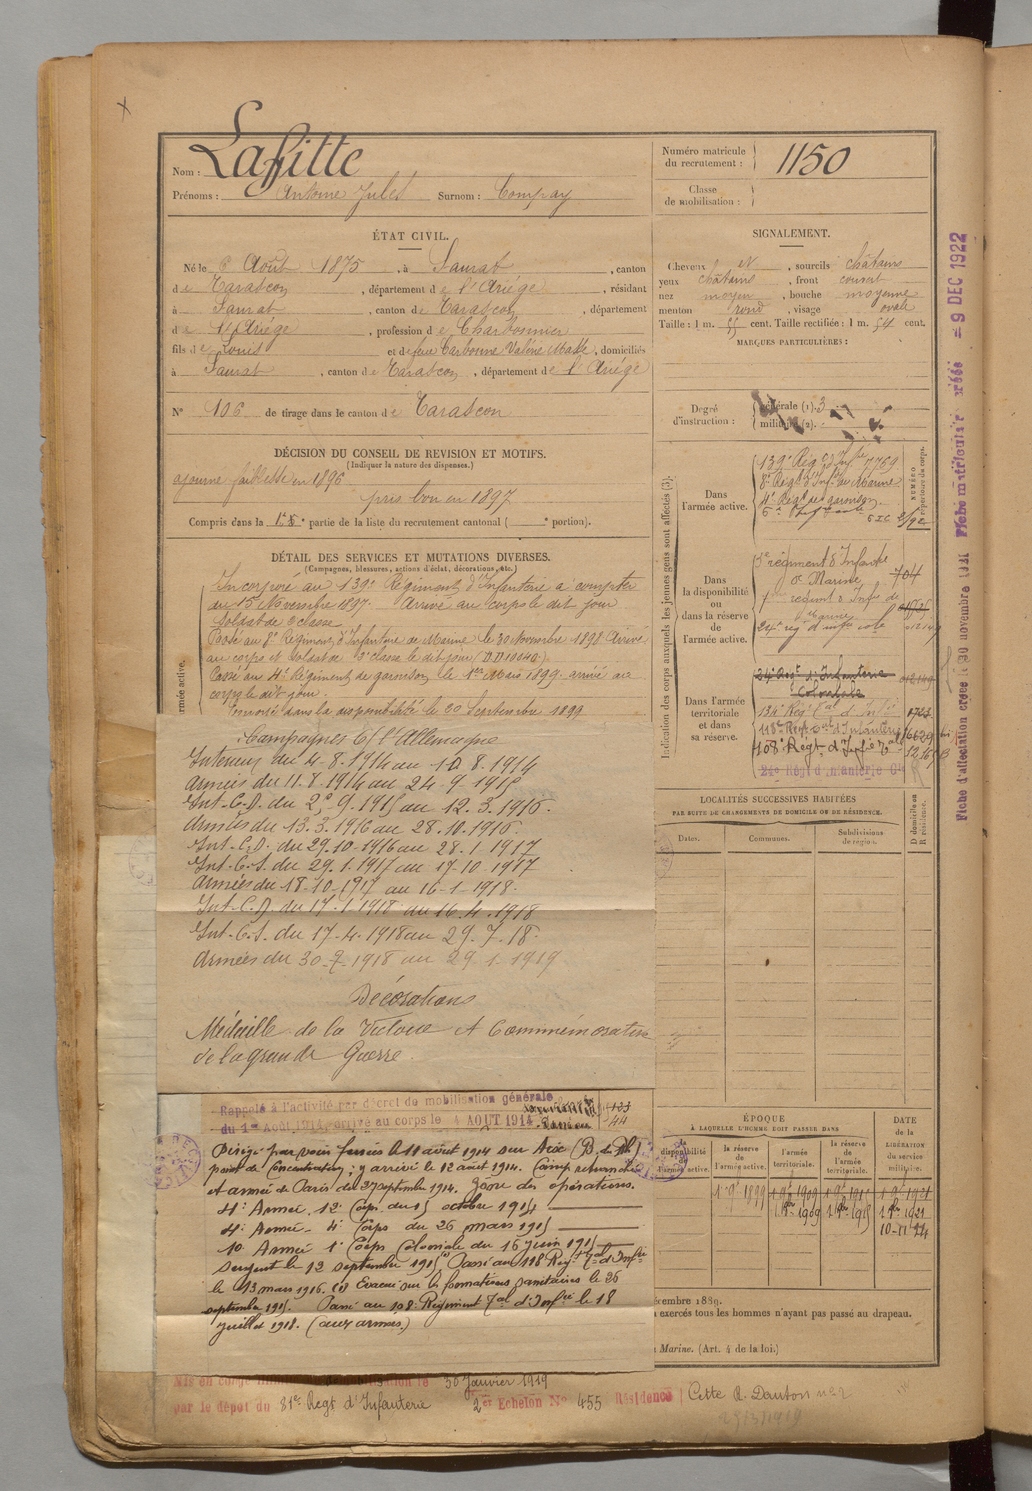 Lafitte
Nom :
Prénoms : Antoine Jules Surnom : Compay
Numéro matricule du recrutement : 1150
Classe de mobilisation :
ÉTAT CIVIL.
Né le 6 Août 1875, à Saurat, canton
de Tarascon, département de l'Ariège, résidant
à Saurat, canton de Tarascon, département
de l'Ariège, profession de Charbonnier
fils de Louis et de feue Carbonne Valérie Matte, domiciliés
à Saurat, canton de Tarascon, département de l'Ariège
N° 106 de tirage dans le canton de Tarascon
SIGNALEMENT.
Cheveux et, sourcils châtains
yeux châtains, front couvert
nez moyen, bouche moyenne
menton rond, visage ovale
Taille : 1 m. 55 cent. Taille rectifiée : 1 m. 54 cent.
MARQUES PARTICULIÈRES :
Degré d'instruction : générale (1). 3
militaire (2).
DÉCISION DU CONSEIL DE REVISION ET MOTIFS.
(Indiquer la nature des dispenses.)
ajourné faiblesse en 1896
pris bon en 1897
Compris dans la 1re partie de la liste du recrutement cantonal ( e portion).
DÉTAIL DES SERVICES ET MUTATIONS DIVERSES.
(Campagnes, blessures, actions d'éclat, décorations, etc.)
armée active.
Incorporé au 139e Régiment d'Infanterie à compter
du 15 Novembre 1897. Arrivé au corps le dit jour
soldat de 2e classe
Passé au 8e Régiment d'Infanterie de Marine le 30 Novembre 1898 Arrivé
au corps et soldat de 2e classe le dit jour (D.D 10040)
Passé au 4e Régiment de garnison le 1er Mars 1899 arrivé au
corps le dit jour.
Envoyé dans la disponibilité le 20 Septembre 1899
Campagnes C/ l'Allemagne
Intérieur du 4-8-1914 au 10.8.1914
Armées du 11.8.1914 au 24-9-1915
Int-C.D. du 25-9-1915 au 12.3.1916.
Armées du 13.3.1916 au 28.10.1916.
Int-C.D. du 29.10-1916 au 28-1-1917
Int-C.S. du 29.1-1917 au 17-10-1917
Armées du 18-10-1917 au 16-1-1918.
Int-C.D. du 17-1-1918 au 16.4.1918
Int-C.S. du 17-4.1918 au 29.7.18.
Armées du 30-7-1918 au 29-1-1919
Décorations
Médaille de la Victoire et Commémorative
de la grande Guerre.
Rappelé à l'activité par décret de mobilisation générale
du 1er Août 1914, arrivé au corps le 4 AOUT 1914
Dirigé par voies ferrées le 11 août 1914 sur Aix (B. du Rh.)
point de Concentration ; y arrivé le 12 août 1914. Camp retranché
et armée de Paris du 27 septembre 1914. Zone des opérations.
4e Armée 12e Corps du 15 octobre 1914
4e Armée - 4e Corps du 26 mars 1915
10e Armée 1er Corps Colonial du 16 juin 1915
Sergent le 12 septembre 1915 Passé au 118 Regt Tal d'Infrie
le 13 mars 1916. (1) Evacué sur les formations sanitaires le 26
septembre 1915. Passé au 108e Régiment Tal d'Infrie le 18
juillet 1918. (aux armées)
30 Janvier 1919
par le dépôt du 81e Regt d'Infanterie 2er Echelon N° 455 Résidence Cette R. Danton n° 2
Indication des corps auxquels les jeunes gens sont affectés (3).
Dans l'armée active.
139e Régt d'Infrie 7769
8e Régt d'Infrie de Marine
4e Régt de garnison
NUMÉRO
Dans la disponibilité ou dans la réserve de l'armée active.
3e régiment d'Infanterie
de Marine 704
24e rég d'infie colle
Dans l'armée territoriale et dans sa réserve.
24e Régt d'Infanterie
Coloniale
134e Régt Tal d'Infie 1723
118e Régt Tal d'Infanterie 16629 bis
108e Régt d'Infie Tale
24e Régt d'Infanterie Cle
LOCALITÉS SUCCESSIVES HABITÉES
PAR SUITE DE CHANGEMENTS DE DOMICILE OU DE RÉSIDENCE.
Dates. Communes. Subdivisions de région. D domicile ou R résidence.
ÉPOQUE
À LAQUELLE L'HOMME DOIT PASSER DANS
DATE de la LIBÉRATION du service militaire.
disponibilité de l'armée active. la réserve de l'armée active. l'armée territoriale. la réserve de l'armée territoriale.
écembre 1889.
s exercés tous les hommes n'ayant pas passé au drapeau.
Marine. (Art. 4 de la loi.)
Fiche d'affectation créée le 30 novembre 1921 Fiche matriculaire créée - 9 DEC 1922